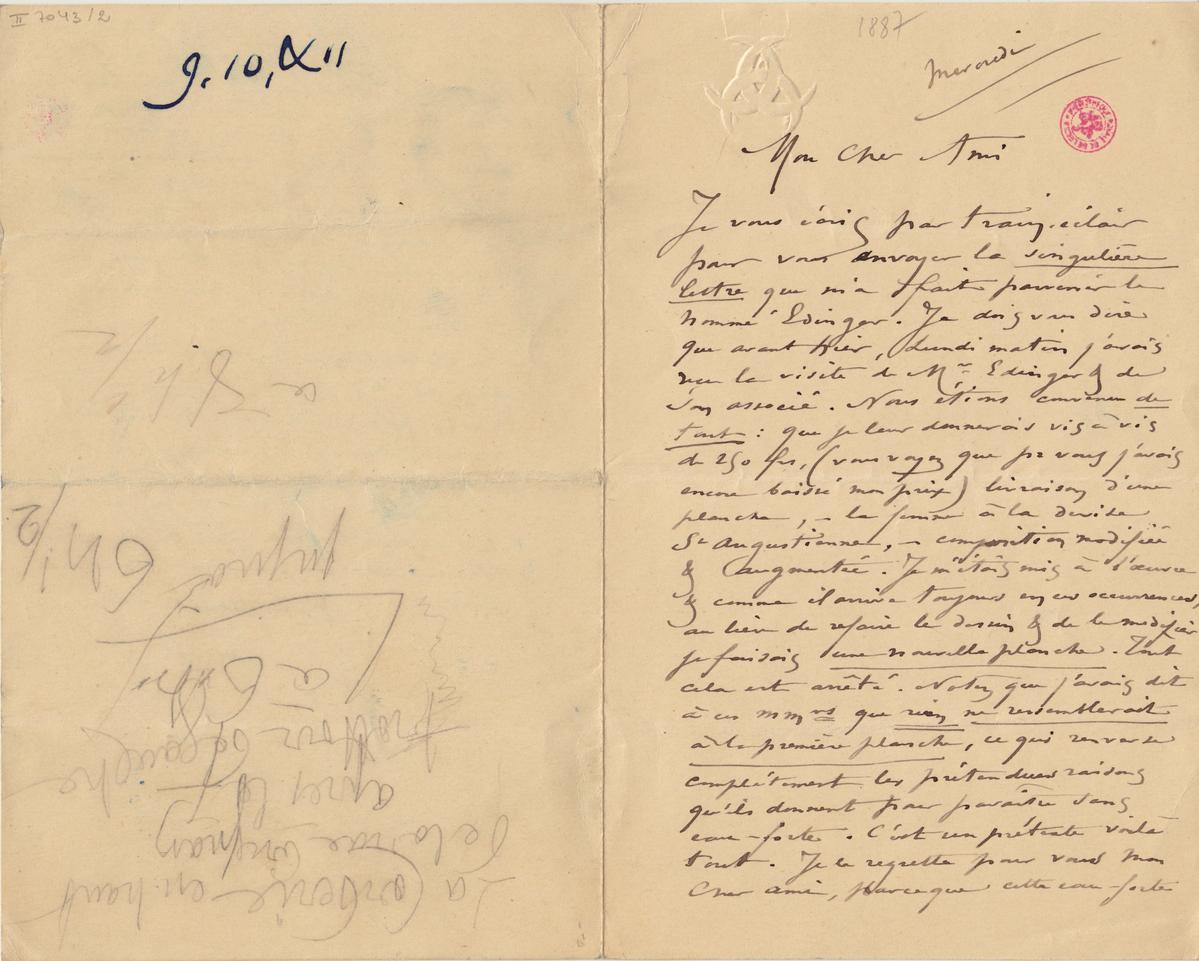 II 7043/2
9, 10, & 11
à 8 h 1/2
jusqu'à 6 h 1/2
à 6 h
trottoir de gauche
après la
de la rue
La en haut
1887
Mercredi
Mon Cher Ami
Je vous écris par train-éclair
pour vous envoyer la singulière
lettre que m'a fait parvenir le
nommé Edinger. Je dois vous dire
que avant Hier, Lundi matin j'avais
reçu la visite de Mr Edinger & de
son associé. Nous étions convenu de
tout : que je leur donnerais vis à vis
de 250 frs, (vous voyez que pr vous j'avais
encore baissé mon prix) livraison d'une
planche, – la femme à la devise
St Augustienne, – composition modifiée
& augmentée. Je m'étais mis à l'œuvre
& comme il arrive toujours en ces occurrences,
au lieu de refaire le dessin & de le modifier
je faisais une nouvelle planche. Tout
cela est arrêté. Notez que j'avais dit
à ces mmrs que rien ne ressemblerait
à la première planche, ce qui renverse
complètement les prétendues raisons
qu'ils donnent pour paraître sans
eau-forte. C'est un prétexte voilà
tout. Je le regrette pour vous mon
Cher ami, parceque cette eau-forte